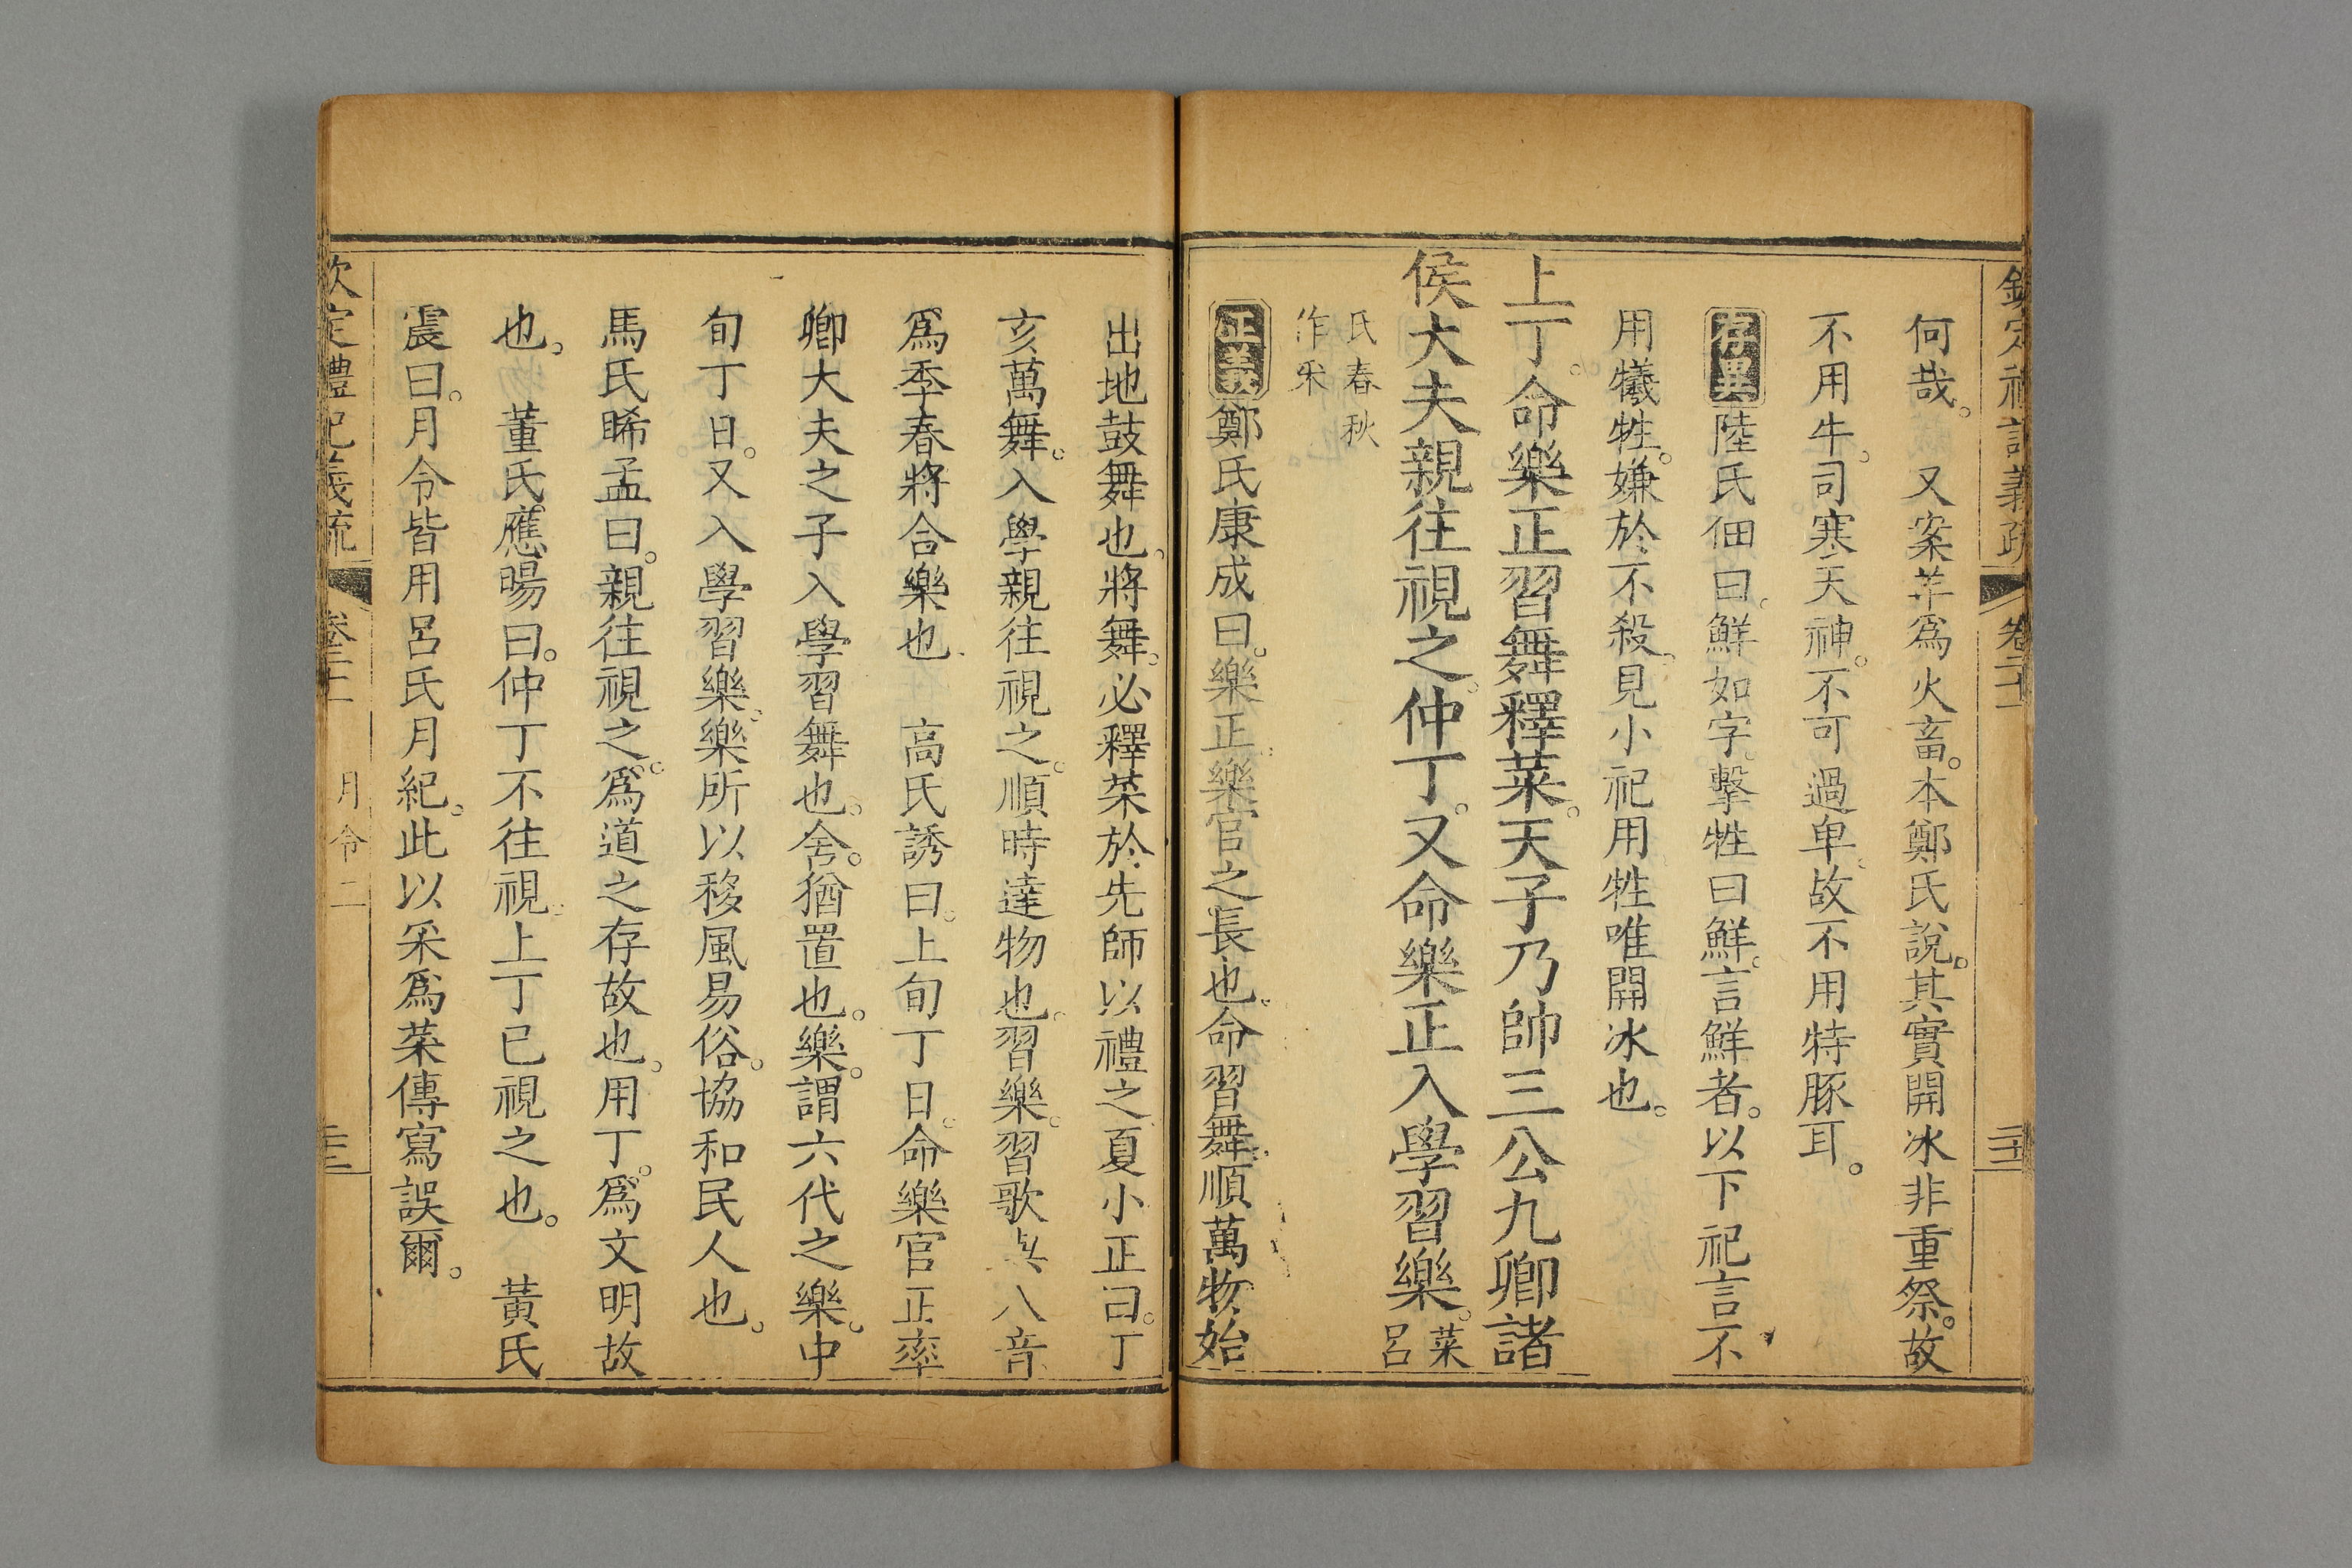 何哉。又案羊爲火畜。本鄭氏說。其實開冰非重祭。故
不用牛。司寒天神。不可過卑。故不用特豚耳。
存異陸氏佃曰。鮮如字。擊牲曰鮮。言鮮者。以下祀言不
用犧牲。嫌於不殺。見小祀用牲唯開冰也。
上丁。命樂正習舞釋菜。天子乃帥三公九卿諸
侯大夫親往視之。仲丁。又命樂正入學習樂。菜呂
氏春秋
作釆
正義鄭氏康成曰。樂正。樂官之長也。命習舞。順萬物始
出地鼓舞也。將舞。必釋菜於先師以禮之。夏小正曰。丁
亥萬舞。入學親往視之。順時達物也。習樂。習歌與八音
爲季春將合樂也。高氏誘曰。上旬丁日。命樂官正率
卿大夫之子入學習舞也。舍。猶置也。樂。謂六代之樂。中
旬丁日。又入學習樂。樂所以移風易俗。協和民人也。
馬氏睎孟曰。親往視之。爲道之存故也。用丁。爲文明故
也。董氏應暘曰。仲丁不往視。上丁已視之也。黃氏
震曰。月令皆用呂氏月紀。此以采爲菜。傳寫誤爾。
欽定禮記義疏 卷二十一 月令二